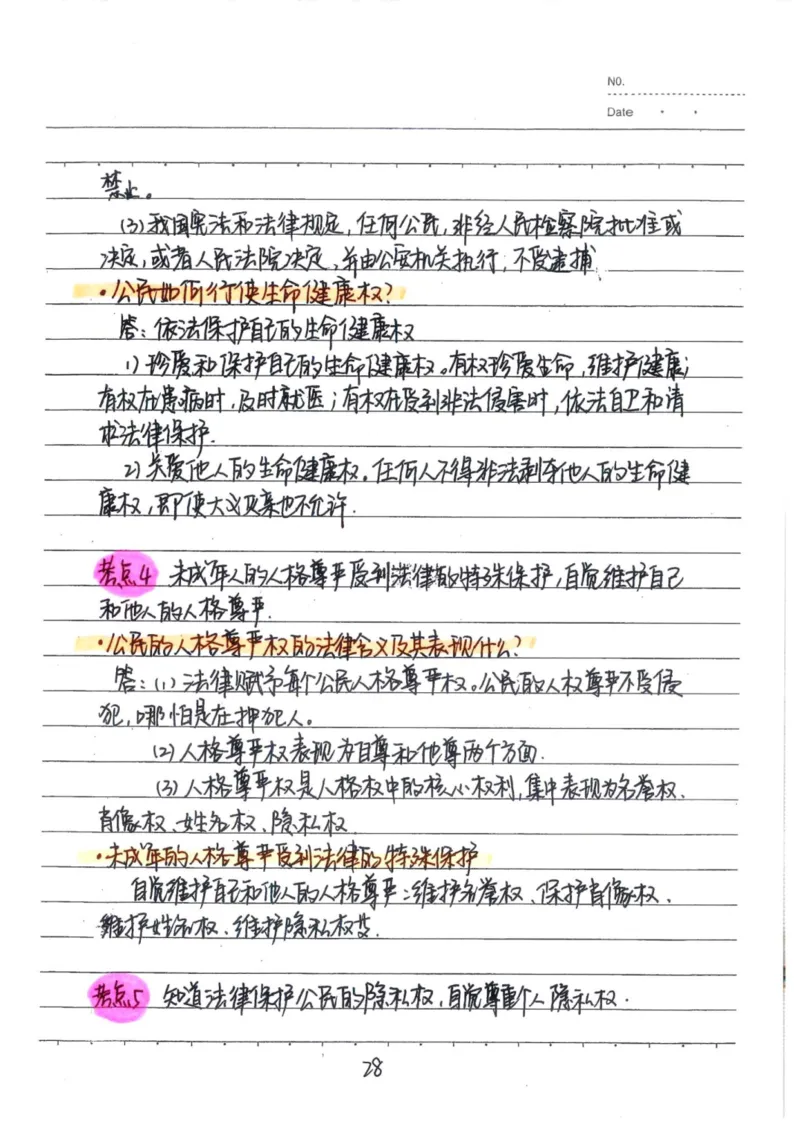 NO.
Date
禁止。
(3)我国宪法和法律规定,任何公民,非经人民检察院批准或
决定,或者人民法院决定,并由公安机关执行,不受逮捕
·公民如何行使生命健康权?
答:依法保护自己的生命健康权
1)珍爱和保护自己的生命健康权。有权珍爱生命,维护健康;
有权在患病时,及时就医;有权在受到非法侵害时,依法自卫和请
求法律保护.
2)关爱他人的生命健康权。任何人不得非法剥夺他人的生命健
康权,即使大义灭亲也不允许.
考点4 未成年人的人格尊严受到法律的特殊保护,自觉维护自己
和他人的人格尊严.
·公民的人格尊严权的法律含义及其表现什么?
答:(1)法律赋予每个公民人格尊严权。公民的人权尊严不受侵
犯,哪怕是在押犯人。
(2)人格尊严权表现为自尊和他尊两个方面.
(3)人格尊严权是人格权中的核心权利,集中表现为名誉权、
肖像权、姓名权、隐私权
·未成年的人格尊严受到法律的特殊保护
自觉维护自己和他人的人格尊严:维护名誉权、保护肖像权、
维护姓名权、维护隐私权等.
考点5 知道法律保护公民的隐私权,自觉尊重个人隐私权.
28